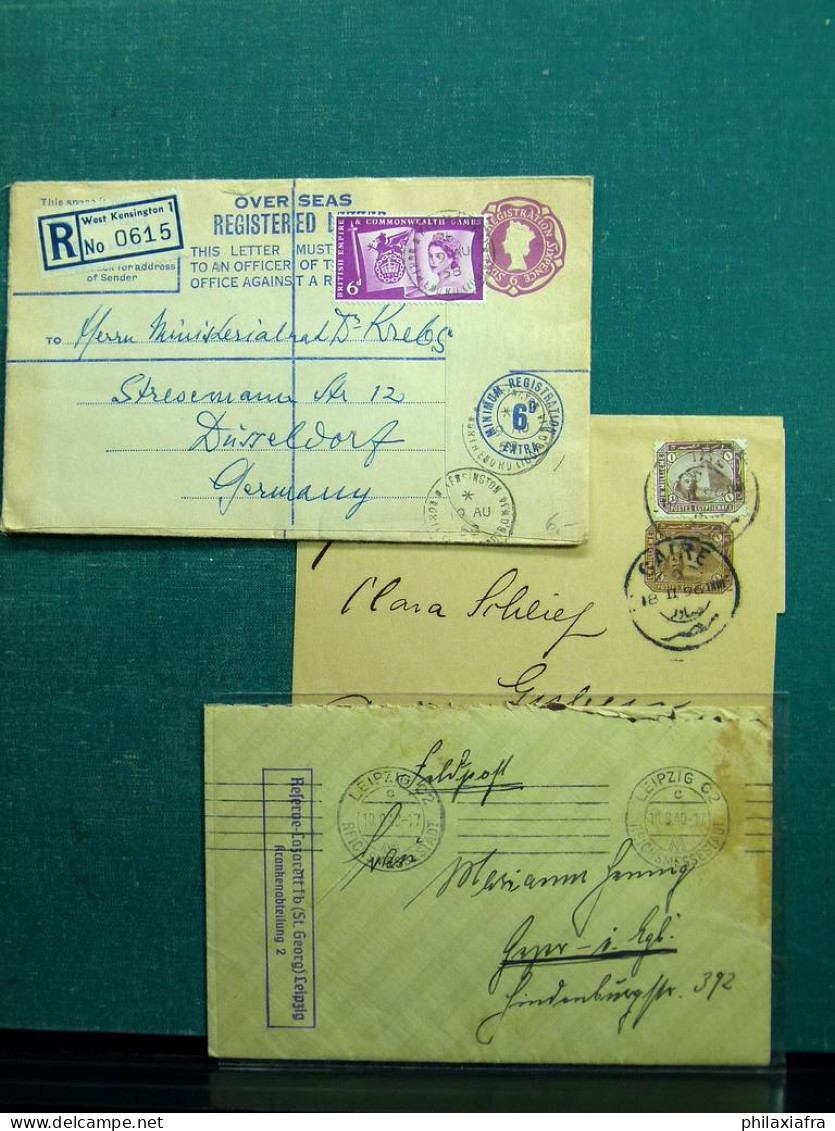 This
OVERSEAS
REGISTERED
R
West Kensington 1
No 0615
THIS LETTER MUST
TO AN OFFICER OF
OFFICE AGAINST A
for address
of Sender
BRITISH EMPIRE & COMMONWEALTH GAMES
6d
REGISTRATION
SIXPENCE
TO Herrn Ministerialrat Dr Krebs
Stresemann Str 12
Düsseldorf
Germany
MINIMUM REGISTRATION
6D
EXTRA
KENSINGTON
AU
6.-
POSTES EGYPTIENNES
CAIRE
18 II 96
Clara Schlief
Feldpost
LEIPZIG C2
c
10.9.40-17
REICHSMESSESTADT
LEIPZIG C2
c
10.9.40-17
REICHSMESSESTADT
Reserve-Lazarett Ib (St. Georg) Leipzig
Krankenabteilung 2
Marianne Hennig
Geyer - i. Egb.
Hindenburgstr. 392
© philaxiafra